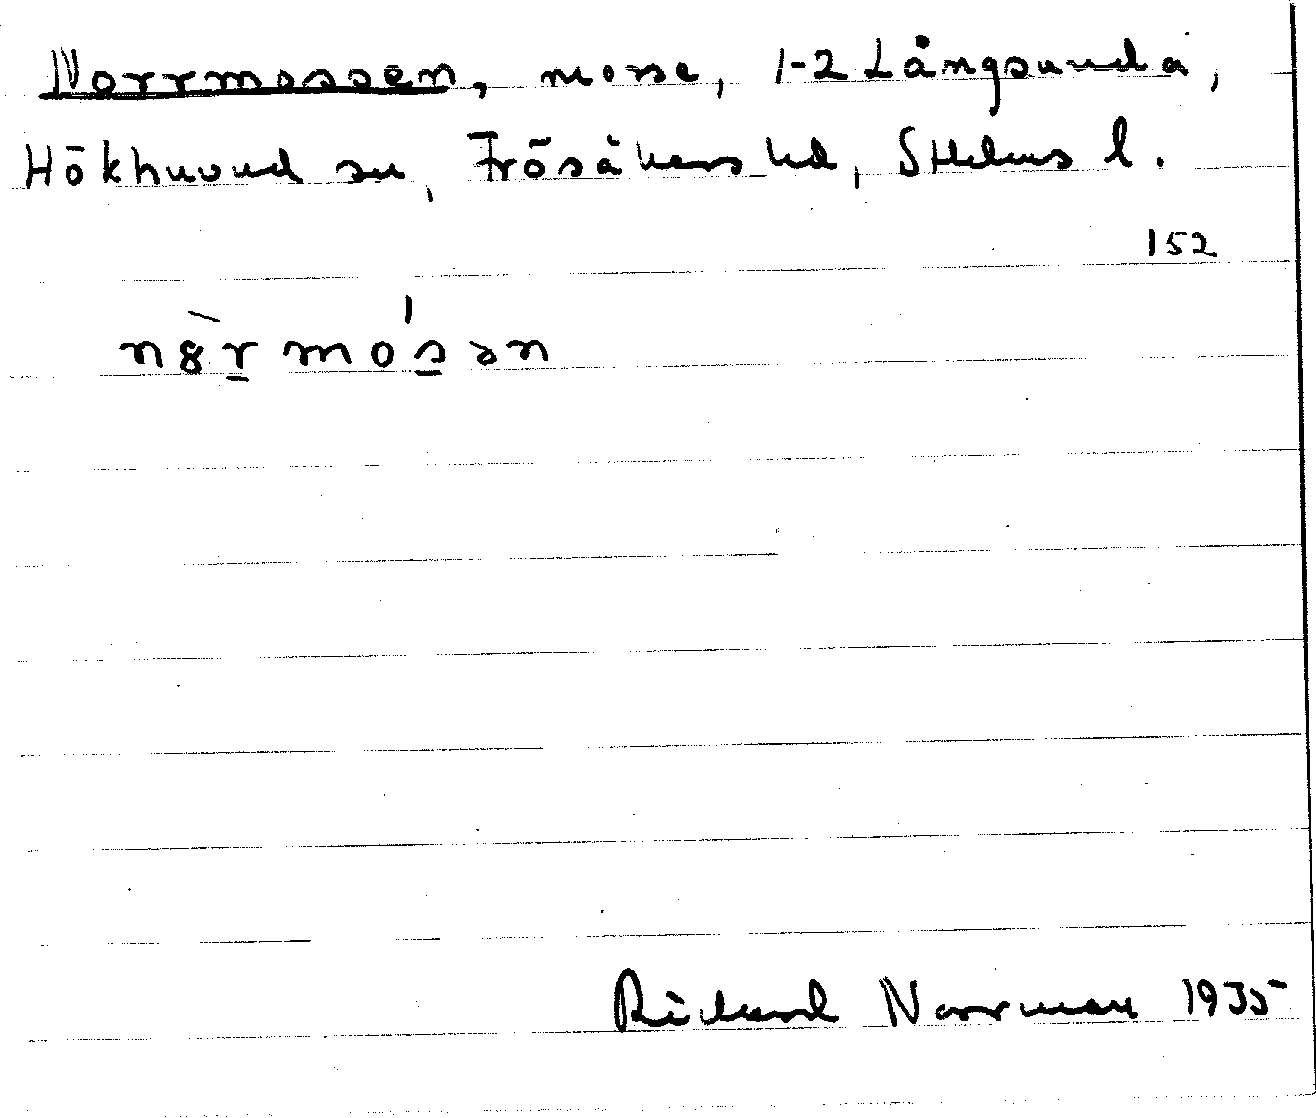 Norrmossen, mosse, 1-2 Långsunda,
Hökhuvud sn, Frösåkers hd, Sthlms l.
152
n8̀r̲mós̲ən
Rickard Norrman 1935